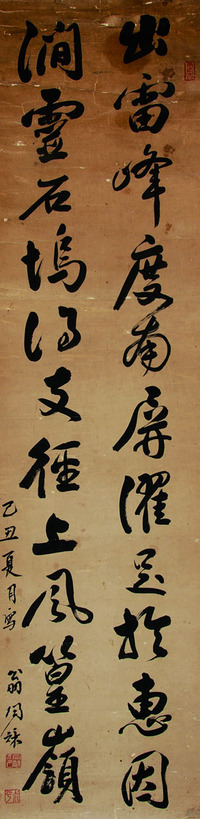 出雷峰度南屏濯足於惠因
澗靈石塢得支徑上風篁嶺
乙丑夏月寫
翁同龢